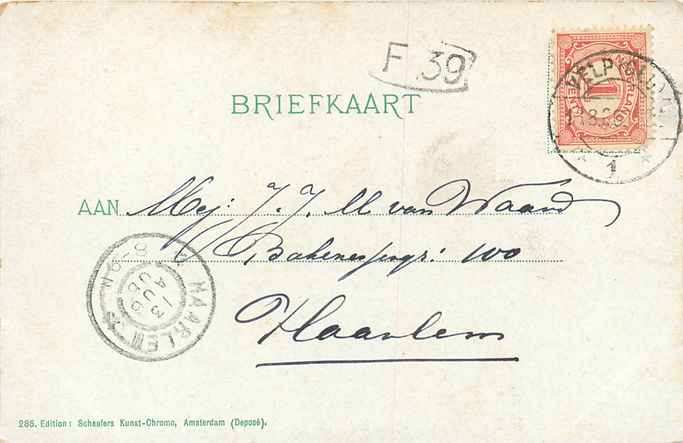 F 39
VELP (GELD.)
1
BRIEFKAART
AAN Mej: J. J. M van Waard
Bakenessergr: 100
Haarlem
HAARLEM
13
AUG
8-9
286. Edition: Schaefers Kunst-Chromo, Amsterdam (Deposé).